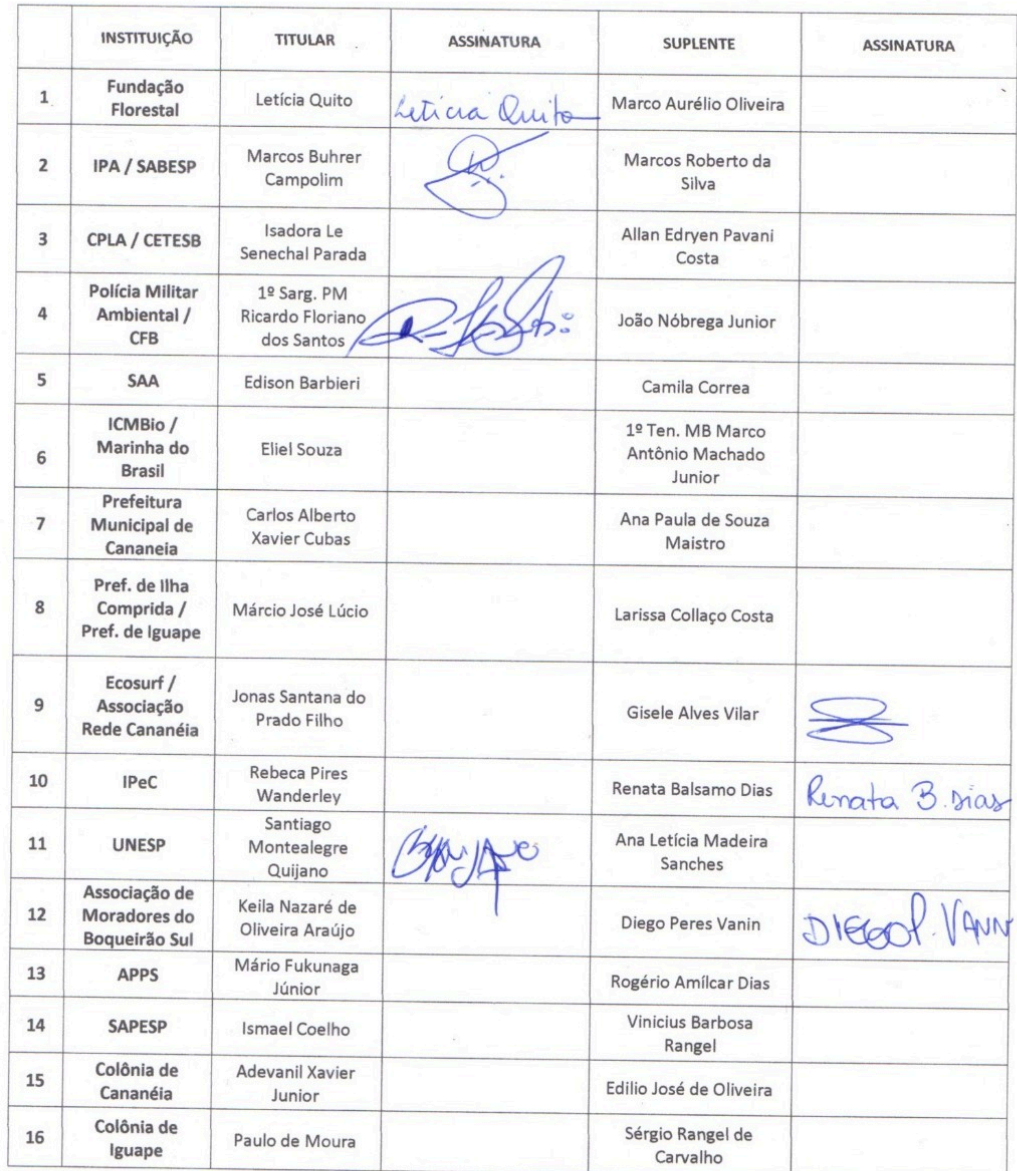 INSTITUIÇÃO TITULAR ASSINATURA SUPLENTE ASSINATURA
1 Fundação Florestal Letícia Quito Letícia Quito Marco Aurélio Oliveira
2 IPA / SABESP Marcos Buhrer Campolim Marcos Roberto da Silva
3 CPLA / CETESB Isadora Le Senechal Parada Allan Edryen Pavani Costa
4 Polícia Militar Ambiental / CFB 1º Sarg. PM Ricardo Floriano dos Santos João Nóbrega Junior
5 SAA Edison Barbieri Camila Correa
6 ICMBio / Marinha do Brasil Eliel Souza 1º Ten. MB Marco Antônio Machado Junior
7 Prefeitura Municipal de Cananeia Carlos Alberto Xavier Cubas Ana Paula de Souza Maistro
8 Pref. de Ilha Comprida / Pref. de Iguape Márcio José Lúcio Larissa Collaço Costa
9 Ecosurf / Associação Rede Cananéia Jonas Santana do Prado Filho Gisele Alves Vilar
10 IPeC Rebeca Pires Wanderley Renata Balsamo Dias Renata B. Dias
11 UNESP Santiago Montealegre Quijano Ana Letícia Madeira Sanches
12 Associação de Moradores do Boqueirão Sul Keila Nazaré de Oliveira Araújo Diego Peres Vanin DIEGO P. VANIN
13 APPS Mário Fukunaga Júnior Rogério Amílcar Dias
14 SAPESP Ismael Coelho Vinicius Barbosa Rangel
15 Colônia de Cananéia Adevanil Xavier Junior Edilio José de Oliveira
16 Colônia de Iguape Paulo de Moura Sérgio Rangel de Carvalho